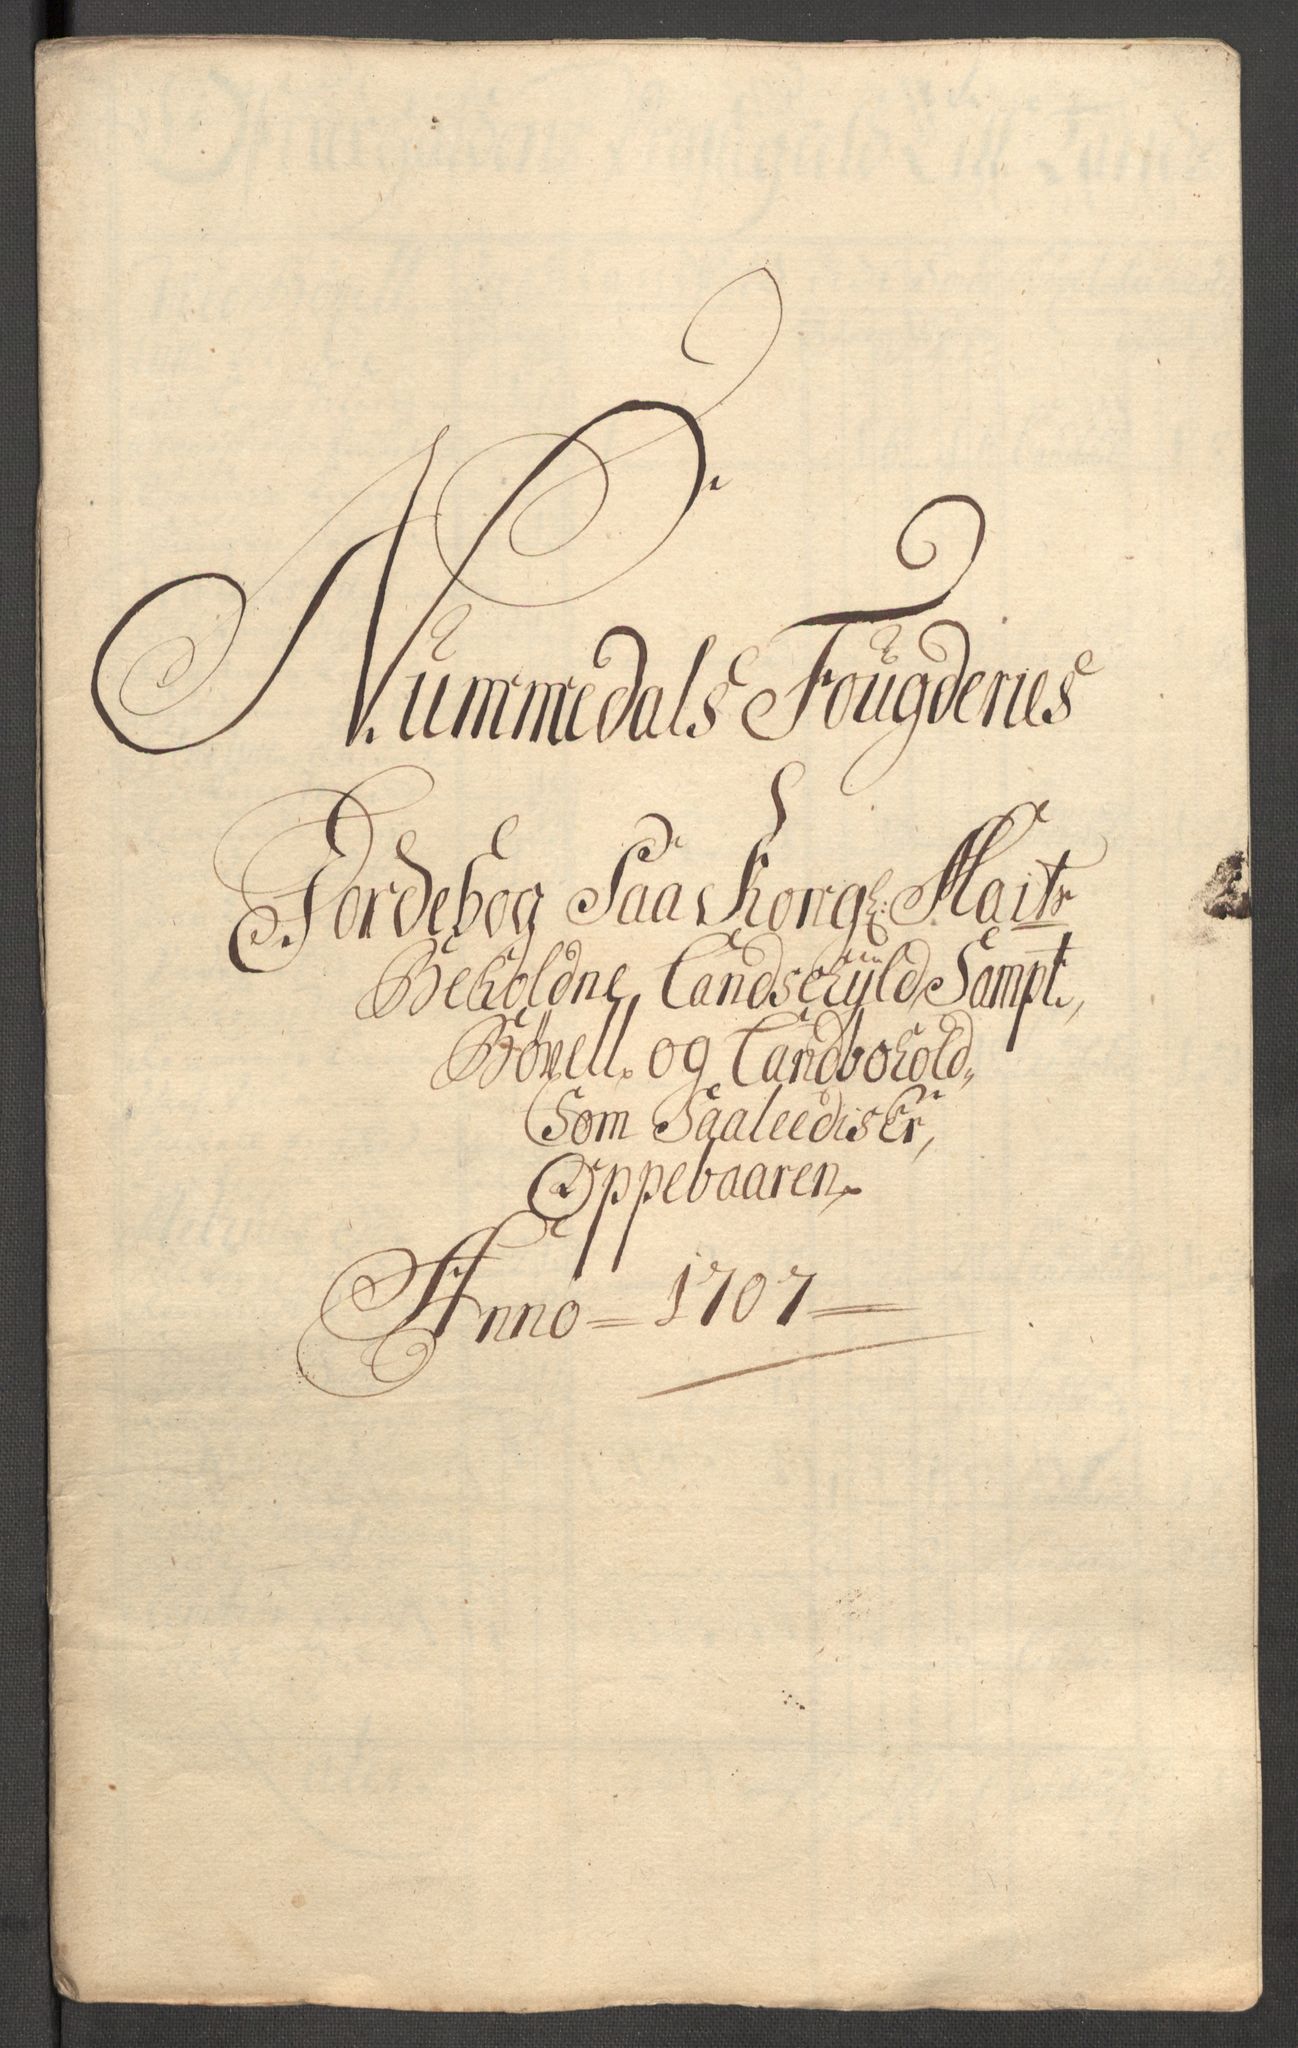 Nummedals Fougderies
Jordebog Paa Kongl: Maits
Beholdne Landschyld Sampt,
Bøxell. og Landbohold,
Som Saaleedis Er,
Oppebaaren.
Anno = 1707 =